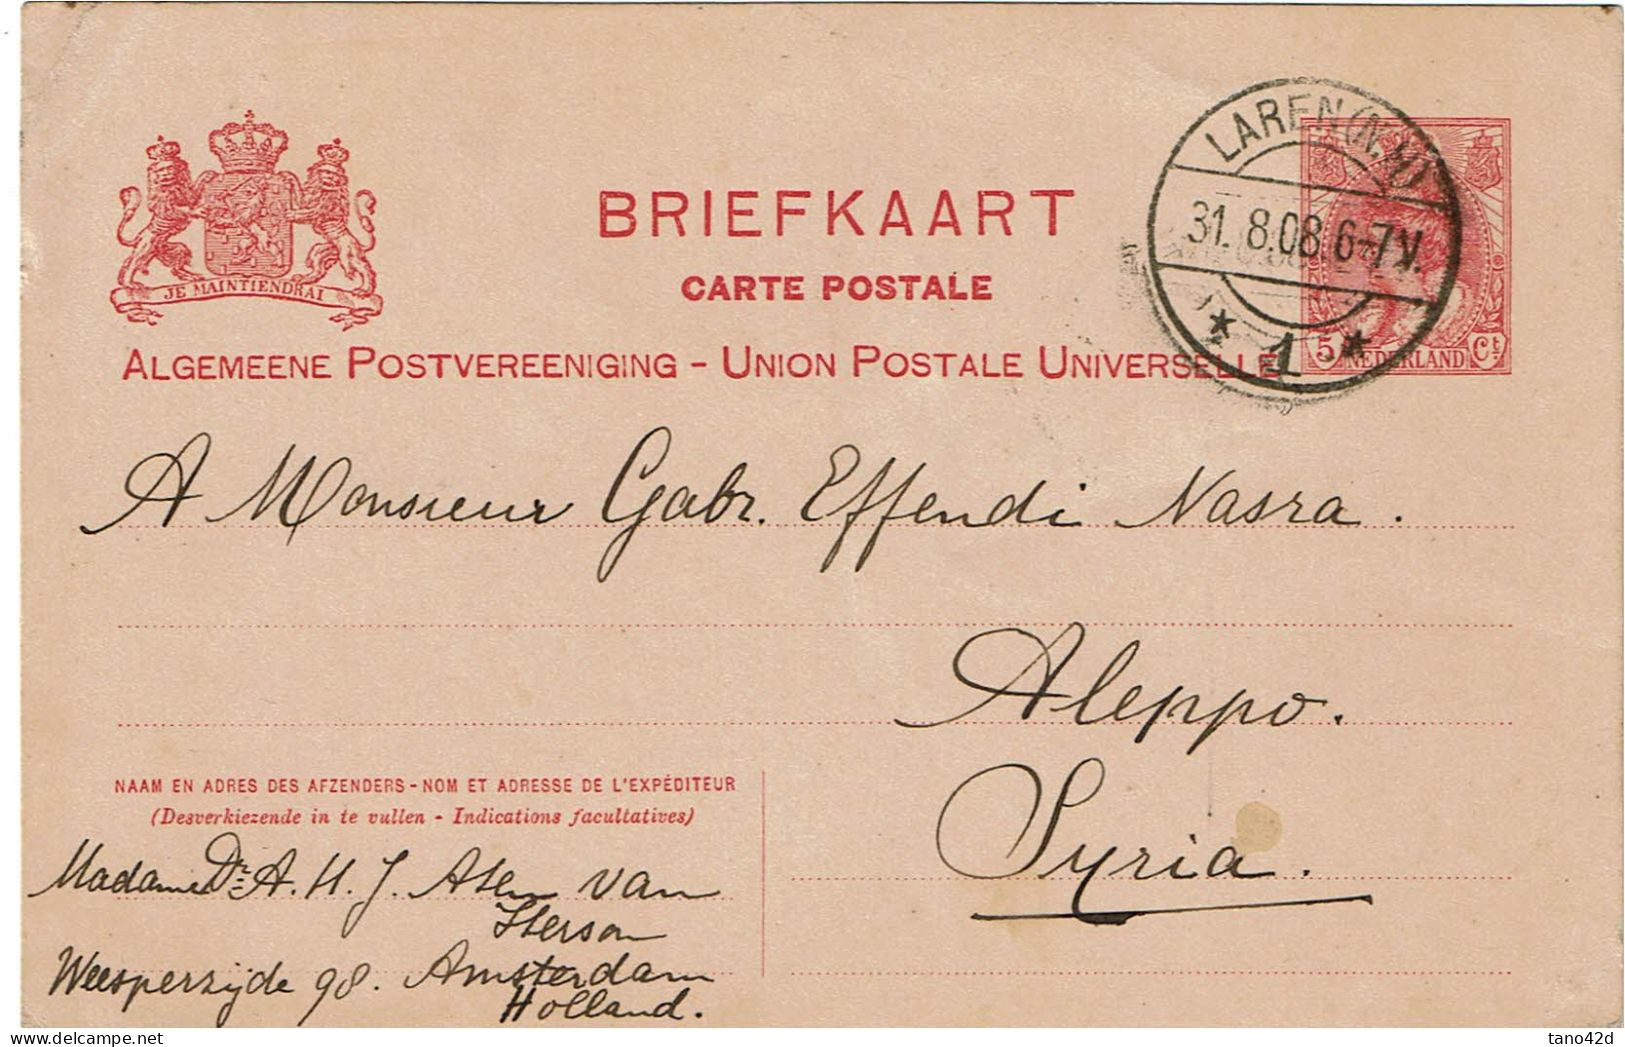 LAREN (N.H)
31.8.08.6-7V.
* 1 *
JE MAINTIENDRAI
BRIEFKAART
CARTE POSTALE
ALGEMEENE POSTVEREENIGING - UNION POSTALE UNIVERSELLE
5 NEDERLAND Ct
A Monsieur Gabr. Effendi Nasra.
Aleppo.
Syria.
NAAM EN ADRES DES AFZENDERS - NOM ET ADRESSE DE L'EXPÉDITEUR
(Desverkiezende in te vullen - Indications facultatives)
Madame Dr. A. H. J. van
Iterson
Weesperzijde 98. Amsterdam
Holland.
delcampe.net
tano42d